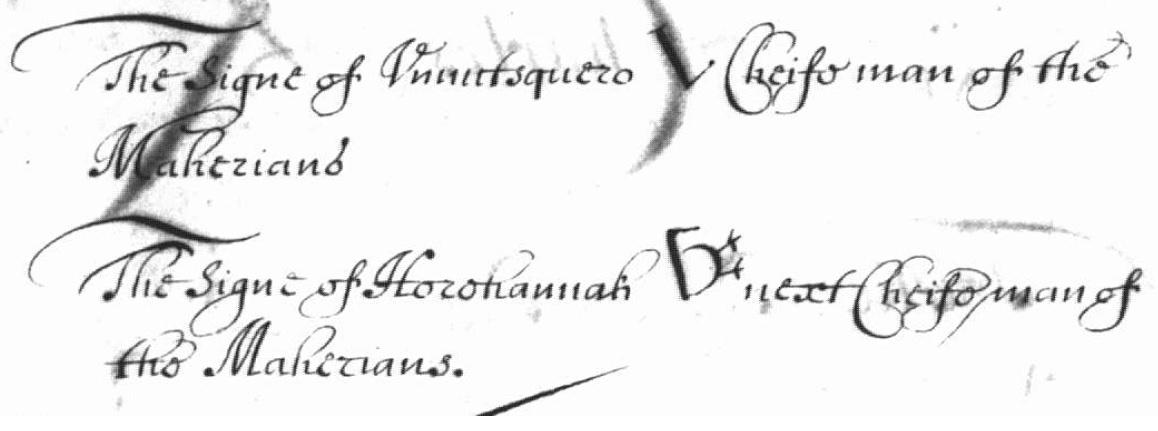 The Signe of Vnuntsquero V Cheife man of the
Maherians
The Signe of Horohannah next Cheife man of
the Maherians.